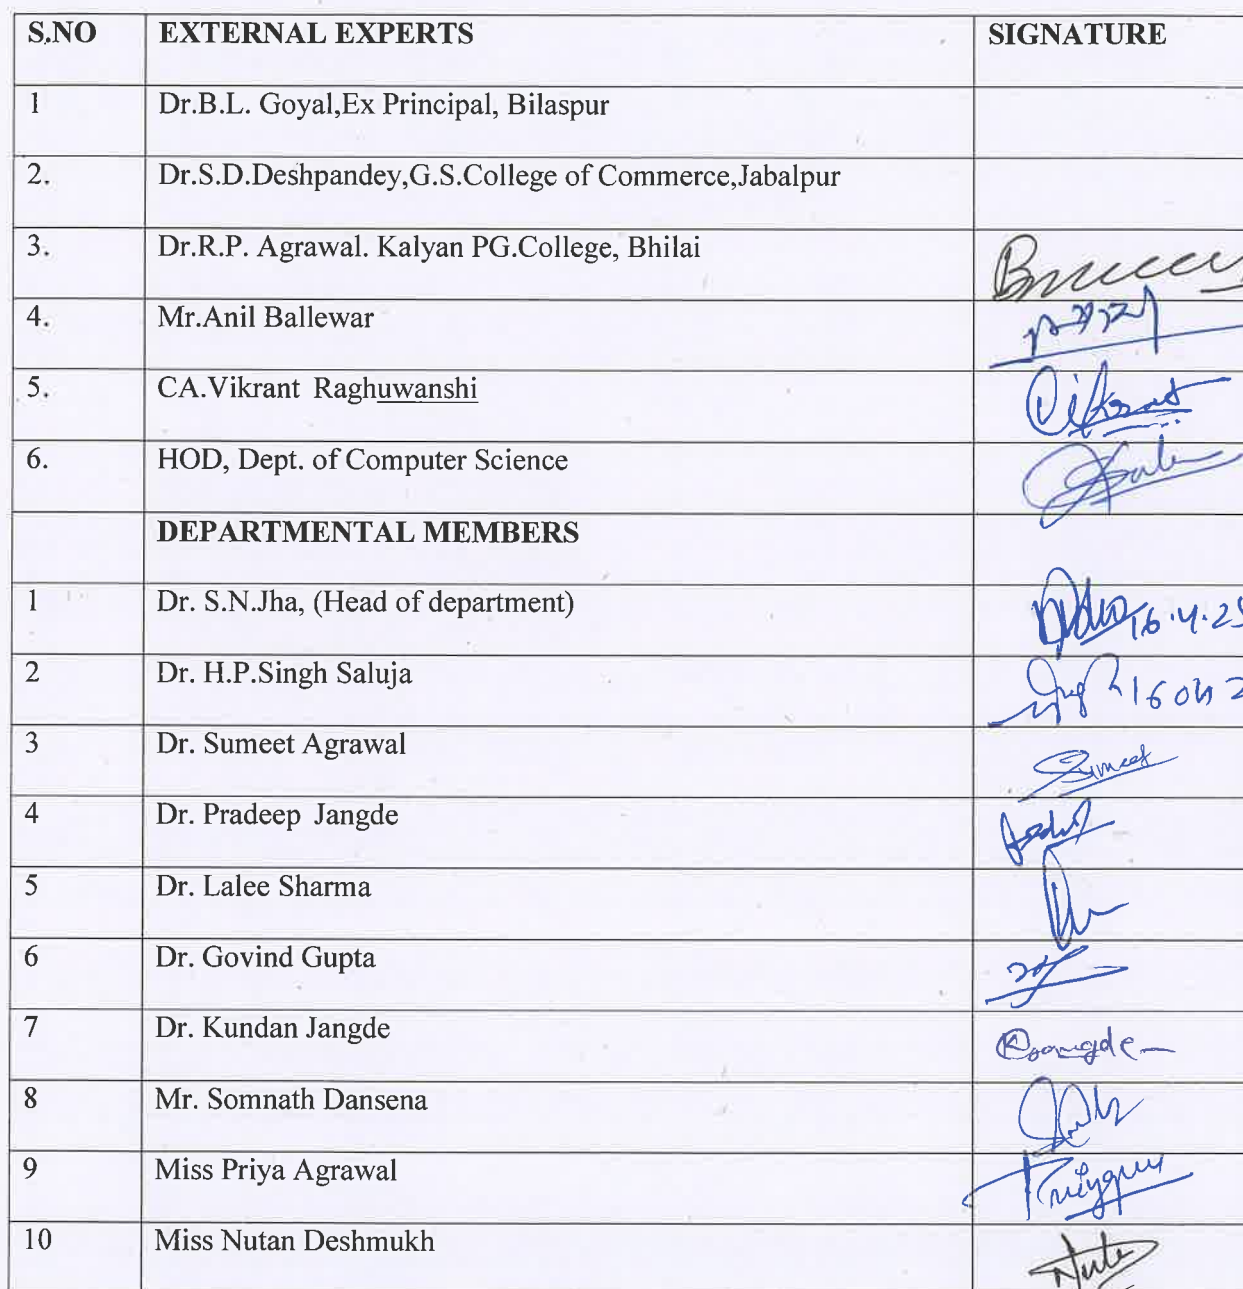 S.NO EXTERNAL EXPERTS SIGNATURE
1 Dr.B.L. Goyal,Ex Principal, Bilaspur
2. Dr.S.D.Deshpandey,G.S.College of Commerce,Jabalpur
3. Dr.R.P. Agrawal. Kalyan PG.College, Bhilai
4. Mr.Anil Ballewar
5. CA.Vikrant Raghuwanshi Vikrant
6. HOD, Dept. of Computer Science
DEPARTMENTAL MEMBERS
1 Dr. S.N.Jha, (Head of department) 16.4.25
2 Dr. H.P.Singh Saluja
3 Dr. Sumeet Agrawal Sumeet
4 Dr. Pradeep Jangde
5 Dr. Lalee Sharma
6 Dr. Govind Gupta
7 Dr. Kundan Jangde KJangde
8 Mr. Somnath Dansena
9 Miss Priya Agrawal
10 Miss Nutan Deshmukh